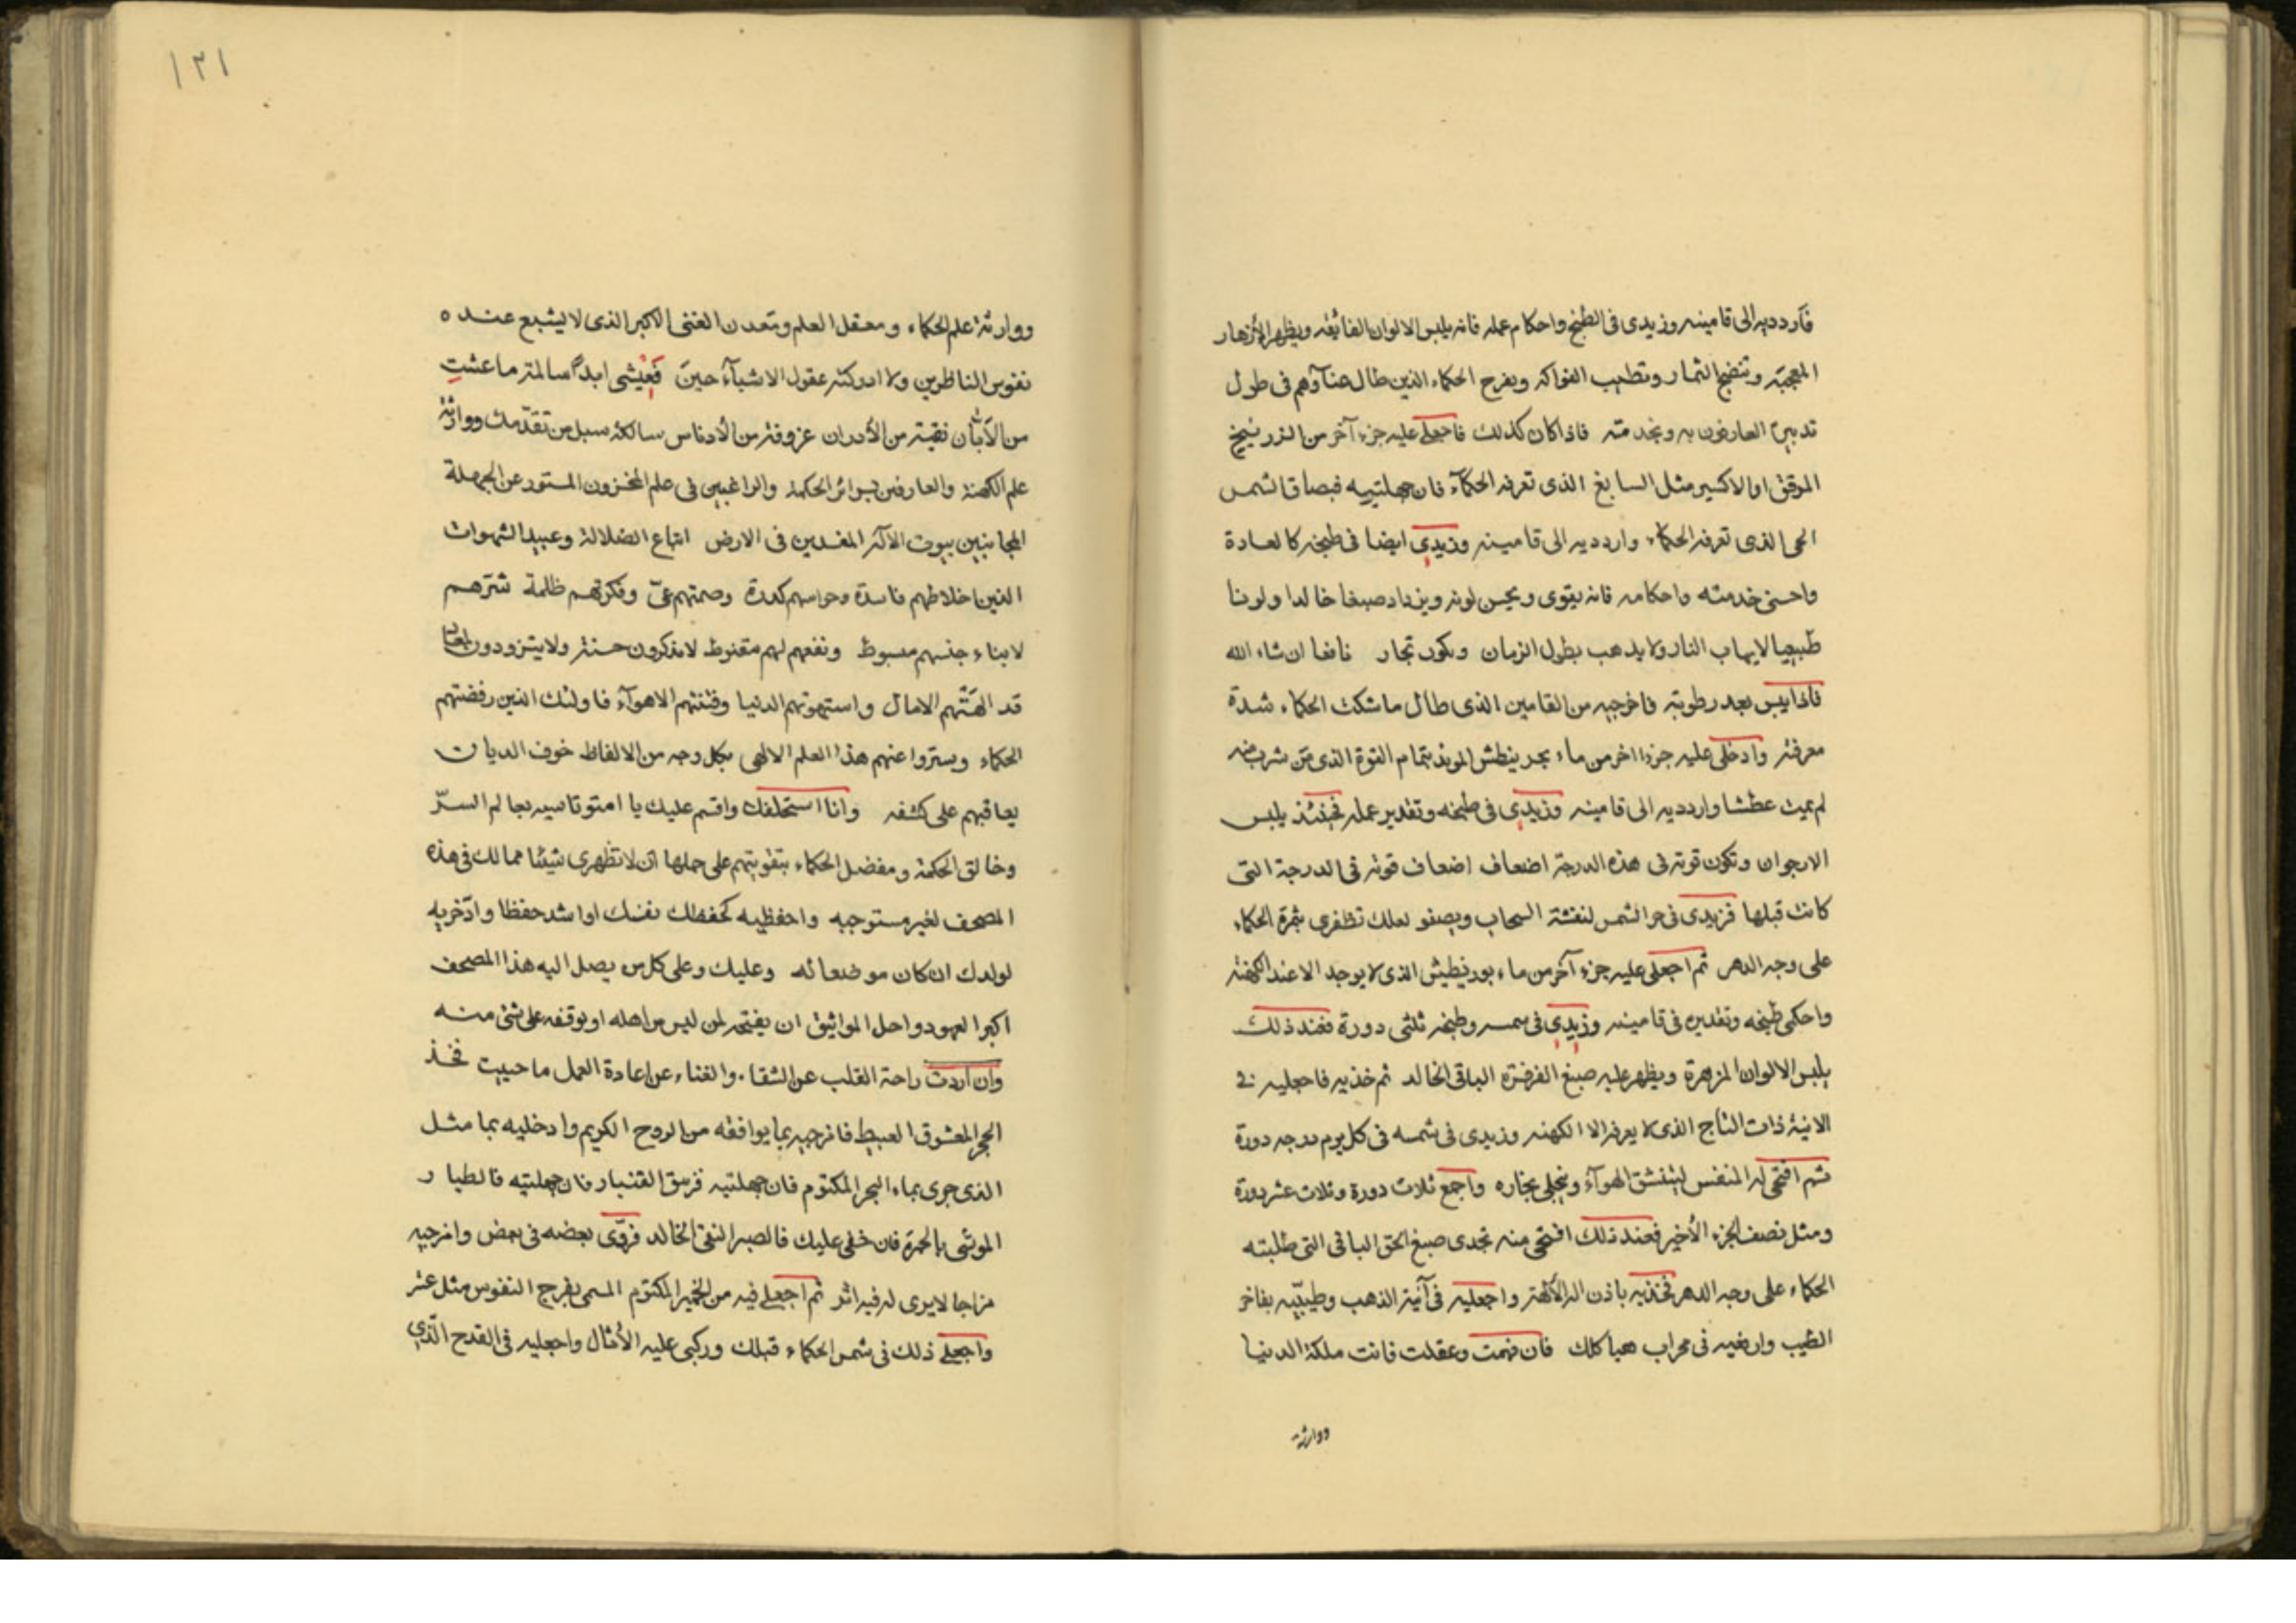 فارددیه الى قامينه وزيدى فى الطبخ واحكام عمله فانه يلبس الالوان الفائقه ويظهر الأزهار
المعجبة وتنضج الثمار وتطيب الفواكه ويفرح الحكماء الذين طال عناؤهم فى طول
تدبير العارفون به وبخدمته فاذا كان كذلك فاجعلى عليه جزء آخر من الزرنيخ
الموقق او الاكسير مثل السابغ الذى تعرفه الحكمآء فان جهلتيه فبصاق الشمس
الحى الذى تعرفه الحكماء وارددیه الى قامينه وزيدى ايضا فى طبخه كالعادة
واحسنى خدمته واحكامه فانه يقوى ويحسن لونه ويزداد صبغا خالدا ولونا
طبيعيا لايهاب النار ولا يذهب بطول الزمان ويكون تجار نافعا ان شاء الله
فاذا يبس بعد رطوبته فاخرجيه من القامين الذى طال ماشكت الحكماء شدة
معرفته وادخلى عليه جزءا اخر من ماء بحر ينطش الموبذ بتمام القوة الذى من شرب منه
لم يمت عطشا وارددیه الى قامينه وزيدى فى طبخه وتقدير عمله فحينئذ يلبس
الارجوان وتكون قوته فى هذه الدرجة اضعاف اضعاف قوته فى الدرجة التى
كانت قبلها فزيدى فى حر الشمس لنفشة السحاب ويصفو لعلك تظفرى بثمرة الحكماء
على وجه الدهر ثم اجعلى عليه جزء آخر من ماء بورنيطيش الذى لا يوجد الا عند الكهنه
واحكمى طبخه وتقديره فى قامينه وزيدى فى شمسه وطبخه ثلثى دورة فعند ذلك
يلبس الالوان المزهرة ويظهر عليه صبغ الفرفتره الباقى الخالد ثم خذيه فاجعليه فى
الانية ذات التاج الذى لا يعرفه الا الكهنه وزيدى فى شمسه فى كل يوم درجه دورة
ثم افتحى له المنفس لينشق الهوآء وينجلى بخاره واجمع ثلاث دورة وثلاث عشر دورة
ومثل نصف الجزء الأخير فعند ذلك افتحى منه تجدى صبغ الحق الباقى التى طلبته
الحكماء على وجه الدهر فخذيه باذن اله الآلهة واجعليه فى آنية الذهب وطيبيه بفاخر
الطيب وارفعيه فى محراب هياكلك فان فهمت وعقلت فانت ملكة الدنيا
ووارثة
١٢١
ووارثة علم الحكماء ومعقل العلم ومعدن الغنى الاكبر الذى لا يشبع عنده
نفوس الناظرين ولا ادركته عقول الاشيآء حين فعيشى ابداً سالمة ما عشتِ
من الآبآن نقية من الأدران عزوفة من الأدناس سالكة سبل من تقدّمك ووارثة
علم الكهنة والعارفين بسرائر الحكمة والراغبين فى علم المخزون المستور عن الجهلة
المجانبين بيوت الآلهة المفسدين فى الارض اتباع الضلالة وعبيد الشهوات
الذين اخلاطهم فاسدة وحواسهم كدرة وصمتهم عىّ وفكرتهم ظلمة شرّهم
لابناء جنسهم مبسوط ونفعهم لهم مقنوط لايذكرون حسنة ولا يتزودون لمعاد
قد الهتهم الامال واستهوتهم الدنيا وفتنتهم الاهوآء فاولئك الذين رفضتهم
الحكماء ويستروا عنهم هذا العلم الالهى بكل وجه من الالفاظ خوف الديان
يعاقبهم على كشفه وانا استحلفك واقسم عليك يا امتوتاسيه بعالم السرّ
وخالق الحكمة ومفضل الحكماء بتقويتهم على حملها ان لا تظهرى شيئا مما لك فى هذه
المصحف لغير مستوجبه واحفظيه كحفظك نفسك او اشد حفظا وادّخريه
لولدك ان كان موضعا له وعليك وعلى كل من يصل اليه هذا المصحف
اكبر العهود واحل المواثيق ان يفتحه لمن ليس من اهله او يوقفه على شئ منه
وان اردت راحة القلب عن الشقا . والغناء عن اعادة العمل ما حييت فخذ
الحجر المعشوق العبيط فامزجيه بما يوافقه من الروح الكريم وادخليه بما مثل
الذى جرى بماء البحر المكتوم فان جهلتيه فزسق القنبار فان جهلتيه فالطيار
الموشى بالحمرة فان خفى عليك فالصبر النقى الخالد فروّى بعضه فى بعض وامزجيه
مزاجا لايرى له فيه اثر ثم اجعلى فيه من الخمير المكتوم المسمى بفرج النفوس مثل عشر
واجعلى ذلك فى شمس الحكماء قبلك وركبى عليه الأمثال واجعليه فى القدح الّذى